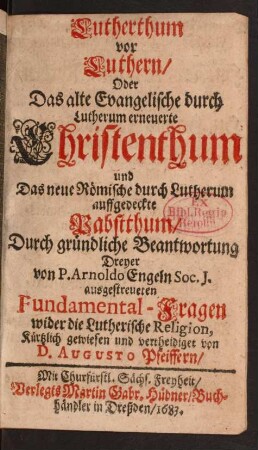 Lutherthum
vor
Luthern/
Oder
Das alte Evangelische durch
Lutherum erneuerte
Christenthum
und
Das neue Römische durch Lutherum
auffgedeckte
Pabstthum/
EX
Bibl. Regia
Berolin.
Durch gründliche Beantwortung
Dreyer
von P. Arnoldo Engeln Soc. J.
ausgestreueten
Fundamental-Fragen
wider die Lutherische Religion,
Kürtzlich gewiesen und vertheidiget von
D. AUGUSTO Pfeiffern/
Mit Churfürstl. Sächs. Freyheit/
Verlegts Martin Gabr. Hübner/Buch-
händler in Dreßden/1683.